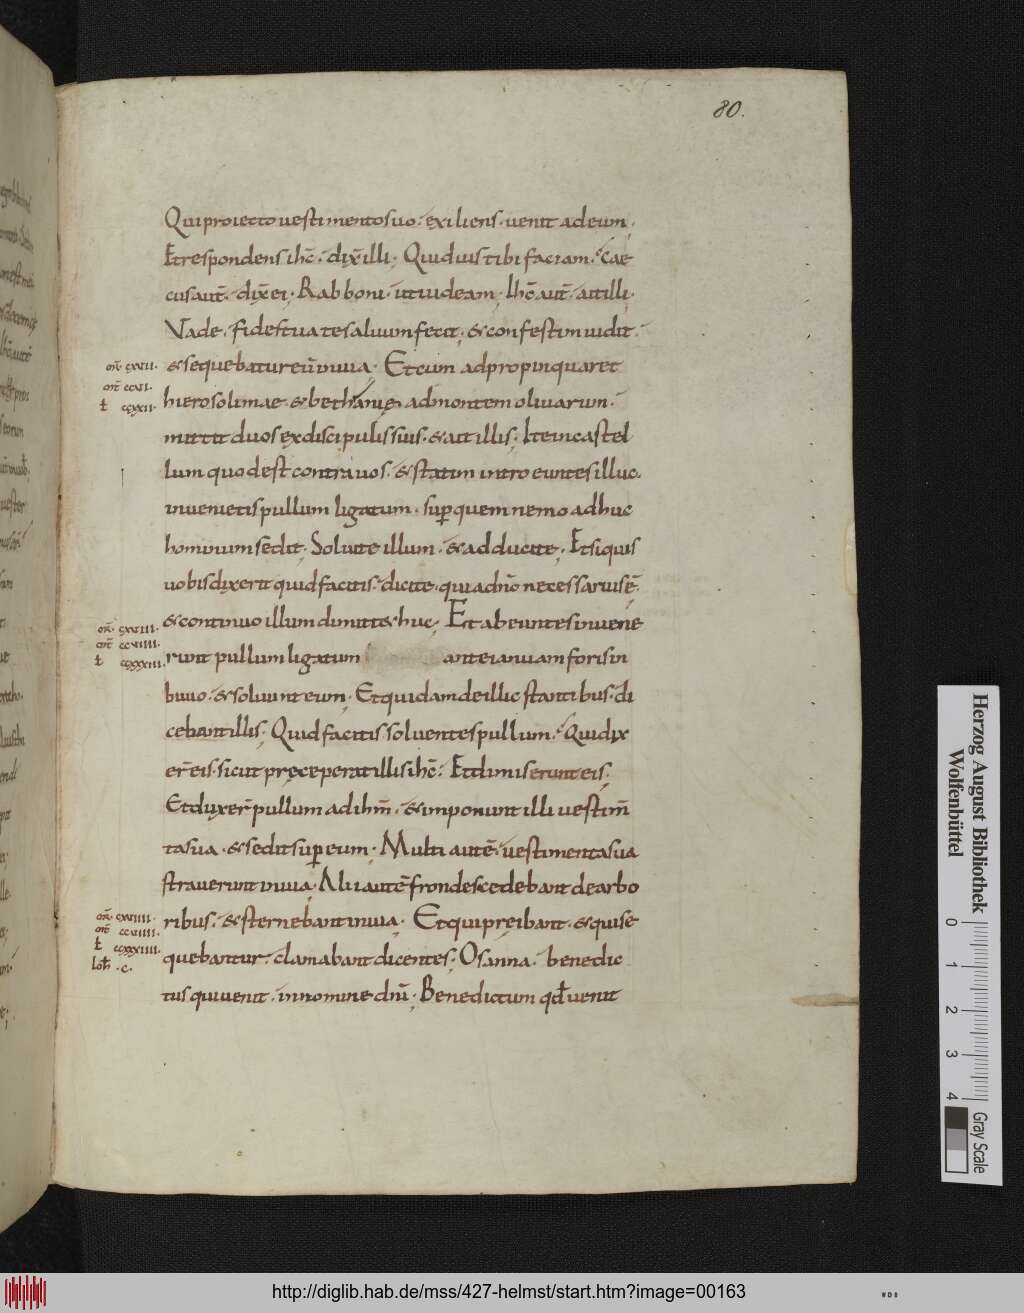 80.
Qui proiecto uestimento suo. exiliens. uenit ad eum.
Et respondens ihc̄. dix̄ illi. Quid uis tibi faciam. Cae
cus aut̄. dix̄ ei. Rabboni. ut uideam. Ihc̄ aut̄. ait illi.
Vade. fides tua te saluum fecit. & confestim uidit.
& sequebatur eū in uia. Et cum adpropinquaret
hierosolimae. & bethanię. ad montem oliuarum.
mittit duos ex discipulis suis. & ait illis. Ite in castel
lum quod est contra uos. & statim introeuntes illuc.
inuenietis pullum ligatum. sup̄ quem nemo adhuc
hominum sedit. Soluite illum. & adducite. Et si quis
uobis dixerit quid facitis. dicite. quia dn̄o necessarius ē.
& continuo illum dimittet huc. Et abeuntes inuene
runt pullum ligatum ante ianuam foris in
biuio. & soluunt eum. Et quidam de illic stantibus. di
cebant illis. Quid facitis soluentes pullum. Qui dix
er̄ eis. sicut pręceperat illis ihc̄. Et dimiserunt eis.
Et duxer̄ pullum ad ihm̄. & imponunt illi uestim̄
ta sua. & sedit sup̄ eum. Multi autē. uestimenta sua
strauerunt in uia. Alii autē frondes cedebant de arbo
ribus. & sternebant in uia. Et qui pręibant. & qui se
quebantur. clamabant dicentes. Osanna. benedic
tus qui uenit. in nomine dn̄i. Benedictum qđ uenit
Herzog August Bibliothek
Wolfenbüttel
0 1 2 3 4
Gray Scale
http://diglib.hab.de/mss/427-helmst/start.htm?image=00163